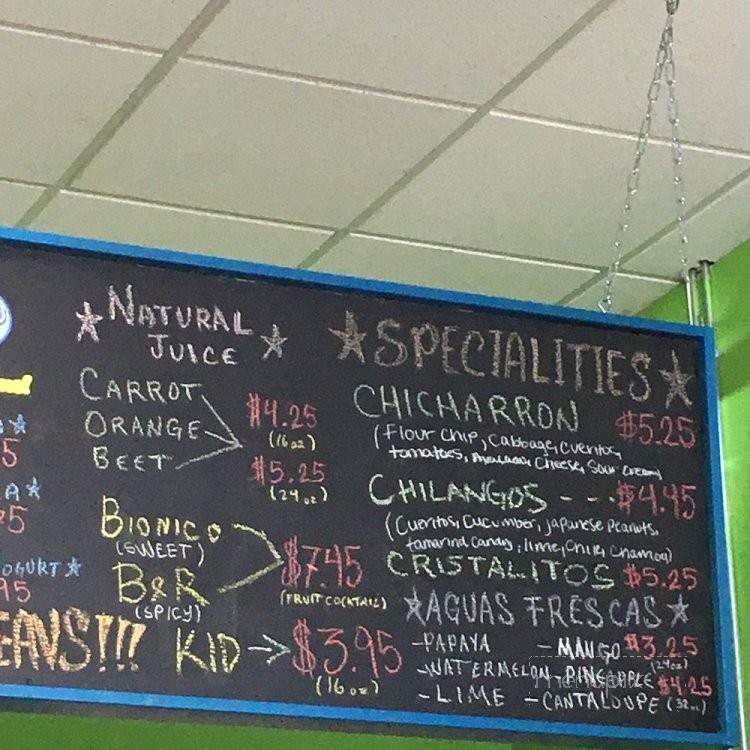 ★NATURAL JUICE★
CARROT
ORANGE
BEET
$4.25
(16oz)
$5.25
(24oz)
BIONICO
(SWEET)
B&R
(SPICY)
$7.45
(FRUIT COCKTAIL)
KID → $3.95
(16oz)
★SPECIALITIES★
CHICHARRON $5.25
(flour chip, Cabbage, cueritos,
tomatoes, Avocado, Cheese, Sour cream)
CHILANGOS - - - $4.45
(Cueritos, Cucumber, japanese Peanuts,
tamarind Candy, lime, Chile, Chamoy)
CRISTALITOS $5.25
★AGUAS FRESCAS★
-PAPAYA -MANGO $3.25
(24oz)
-WATERMELON -PINEAPPLE $4.25
-LIME -CANTALOUPE (32oz)
OGURT★
EANS!!!